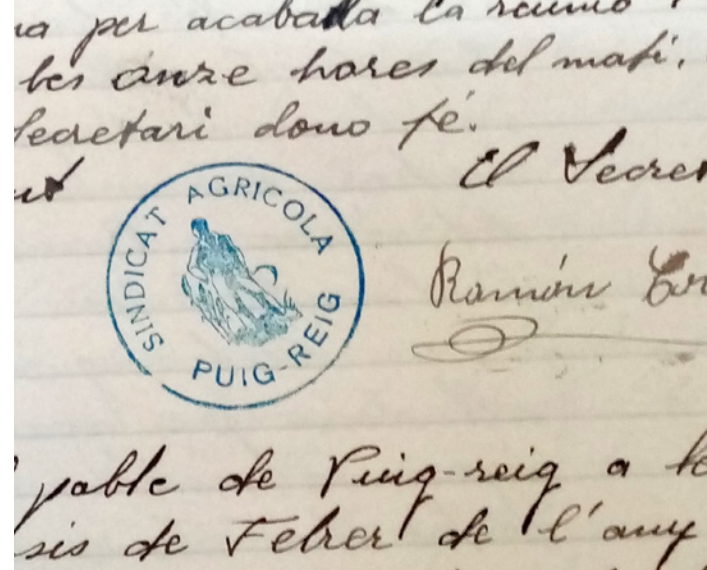 na per acabada la reunió
les onze hores del matí.
Secretari dono fé.
El Secret
SINDICAT AGRICOLA
PUIG-REIG
Ramón
poble de Puig-reig a le
sis de Febrer de l'any